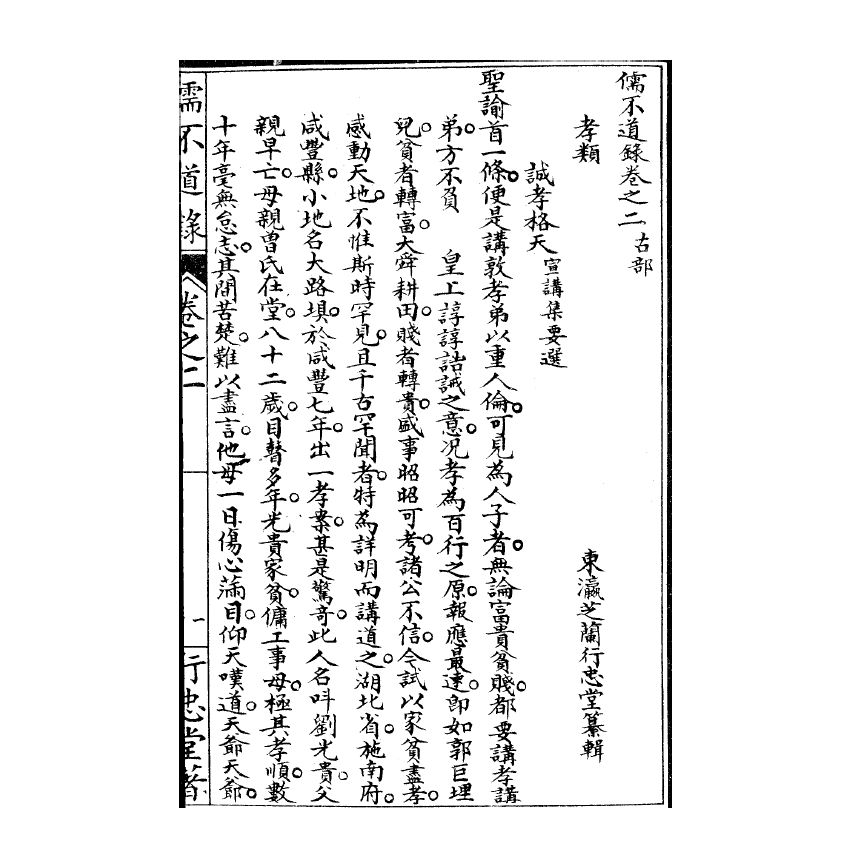 儒不道錄卷之二 古部
孝類 東瀛芝蘭行忠堂纂輯
誠孝格天 宣講集要選
聖諭首一條。便是講敦孝弟以重人倫。可見為人子者。無論富貴貧賤。都要講孝講
弟。方不負 皇上諄諄誥誡之意。况孝為百行之原。報應最速。即如郭巨埋
兒。貧者轉富。大舜耕田。賤者轉貴。盛事昭昭可考。諸公不信。今試以家貧盡孝。
感動天地。不惟斯時罕見。且千古罕聞者。特為詳明而講道之。湖北省。施南府。
咸豐縣。小地名大路埧。於咸豐七年。出一孝案。甚是驚奇。此人名呌劉光貴。父
親早亡。母親曾氏在堂。八十二歲。目瞽多年。光貴家貧。傭工事母。極其孝順。數
十年毫無怠志。其間苦楚。難以盡言。他母一日傷心。滿目。仰天嘆道。天爺天爺。
儒不道錄 卷之二 一 行忠堂著